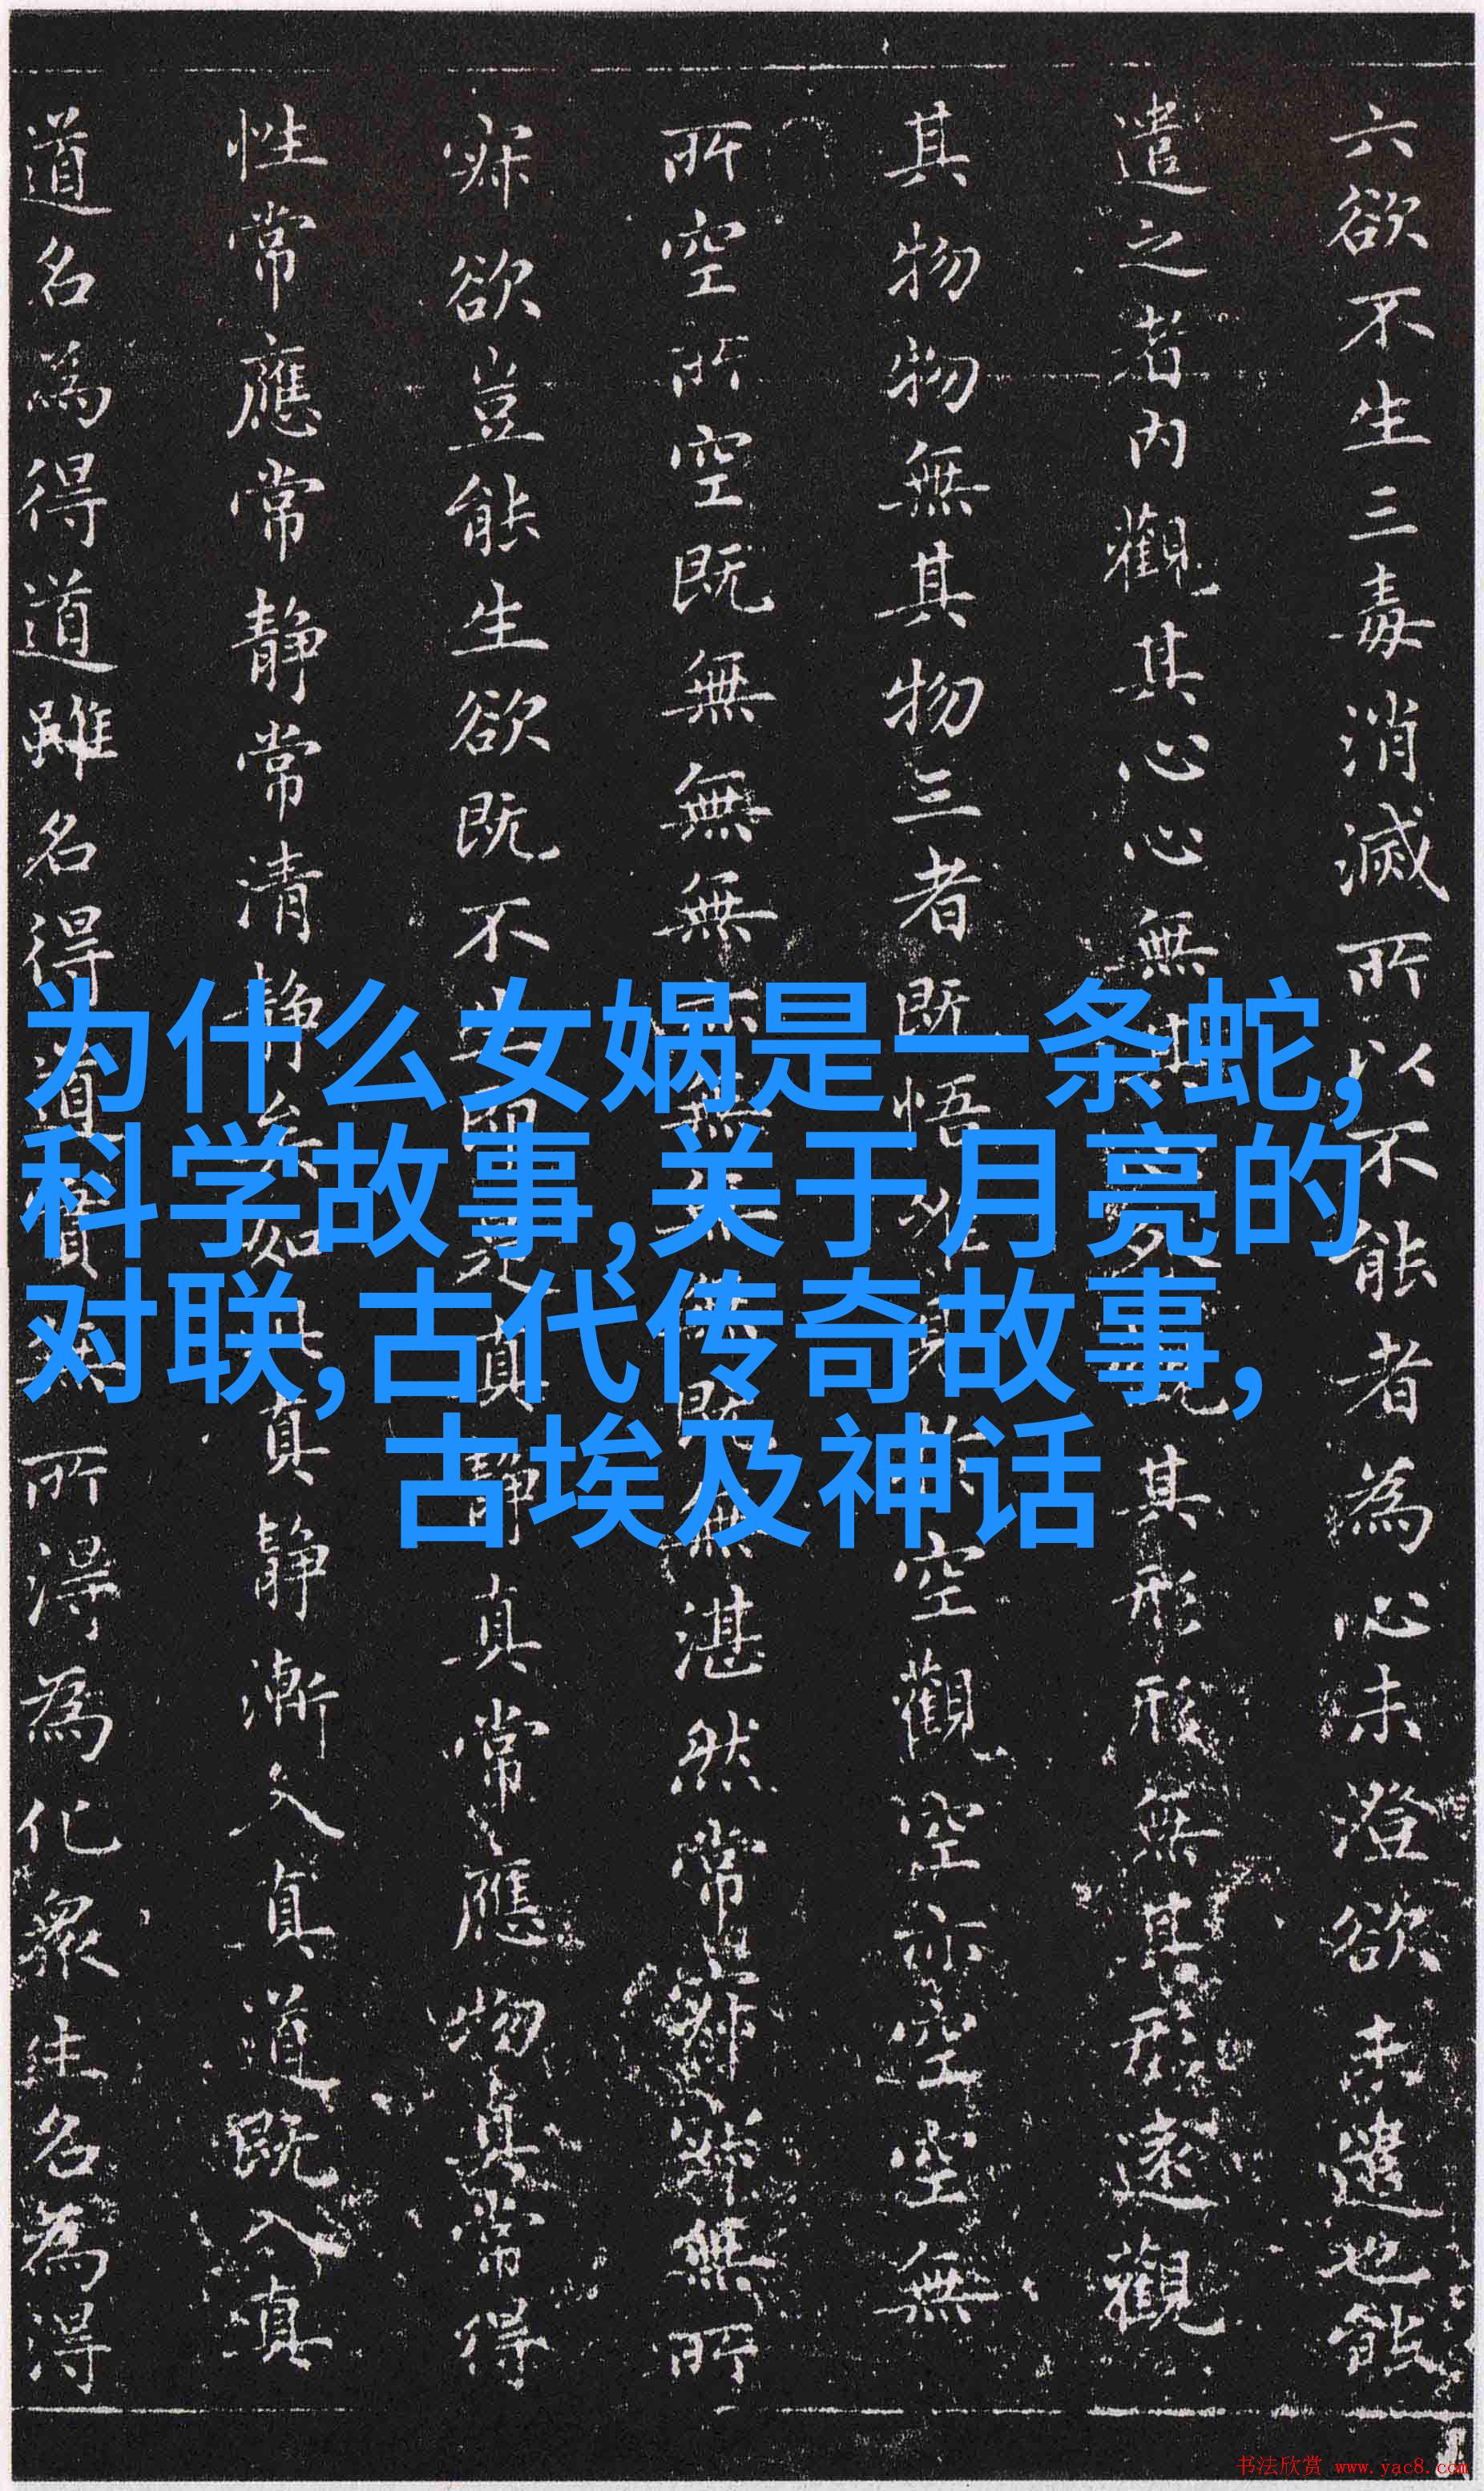 六欲不生三毒消滅所以不能者為心未澄欲未遣也能
遣之者內觀其心心無其心外觀其形形無其形遠觀
其物物無其物三者既悟唯見於空觀空亦空空無
所空所空既無無無亦無無無既無湛然常寂寂無所
寂欲豈能生欲既不生即是真靜真常應物真常得
性常應常靜常清靜矣如此真靜漸入真道既入真
道名為得道雖名得道實無所得為化衆生名為得
为什么女娲是一条蛇,
科学故事,关于月亮的
对联,古代传奇故事,
古埃及神话
书法欣赏 www.yac8.com